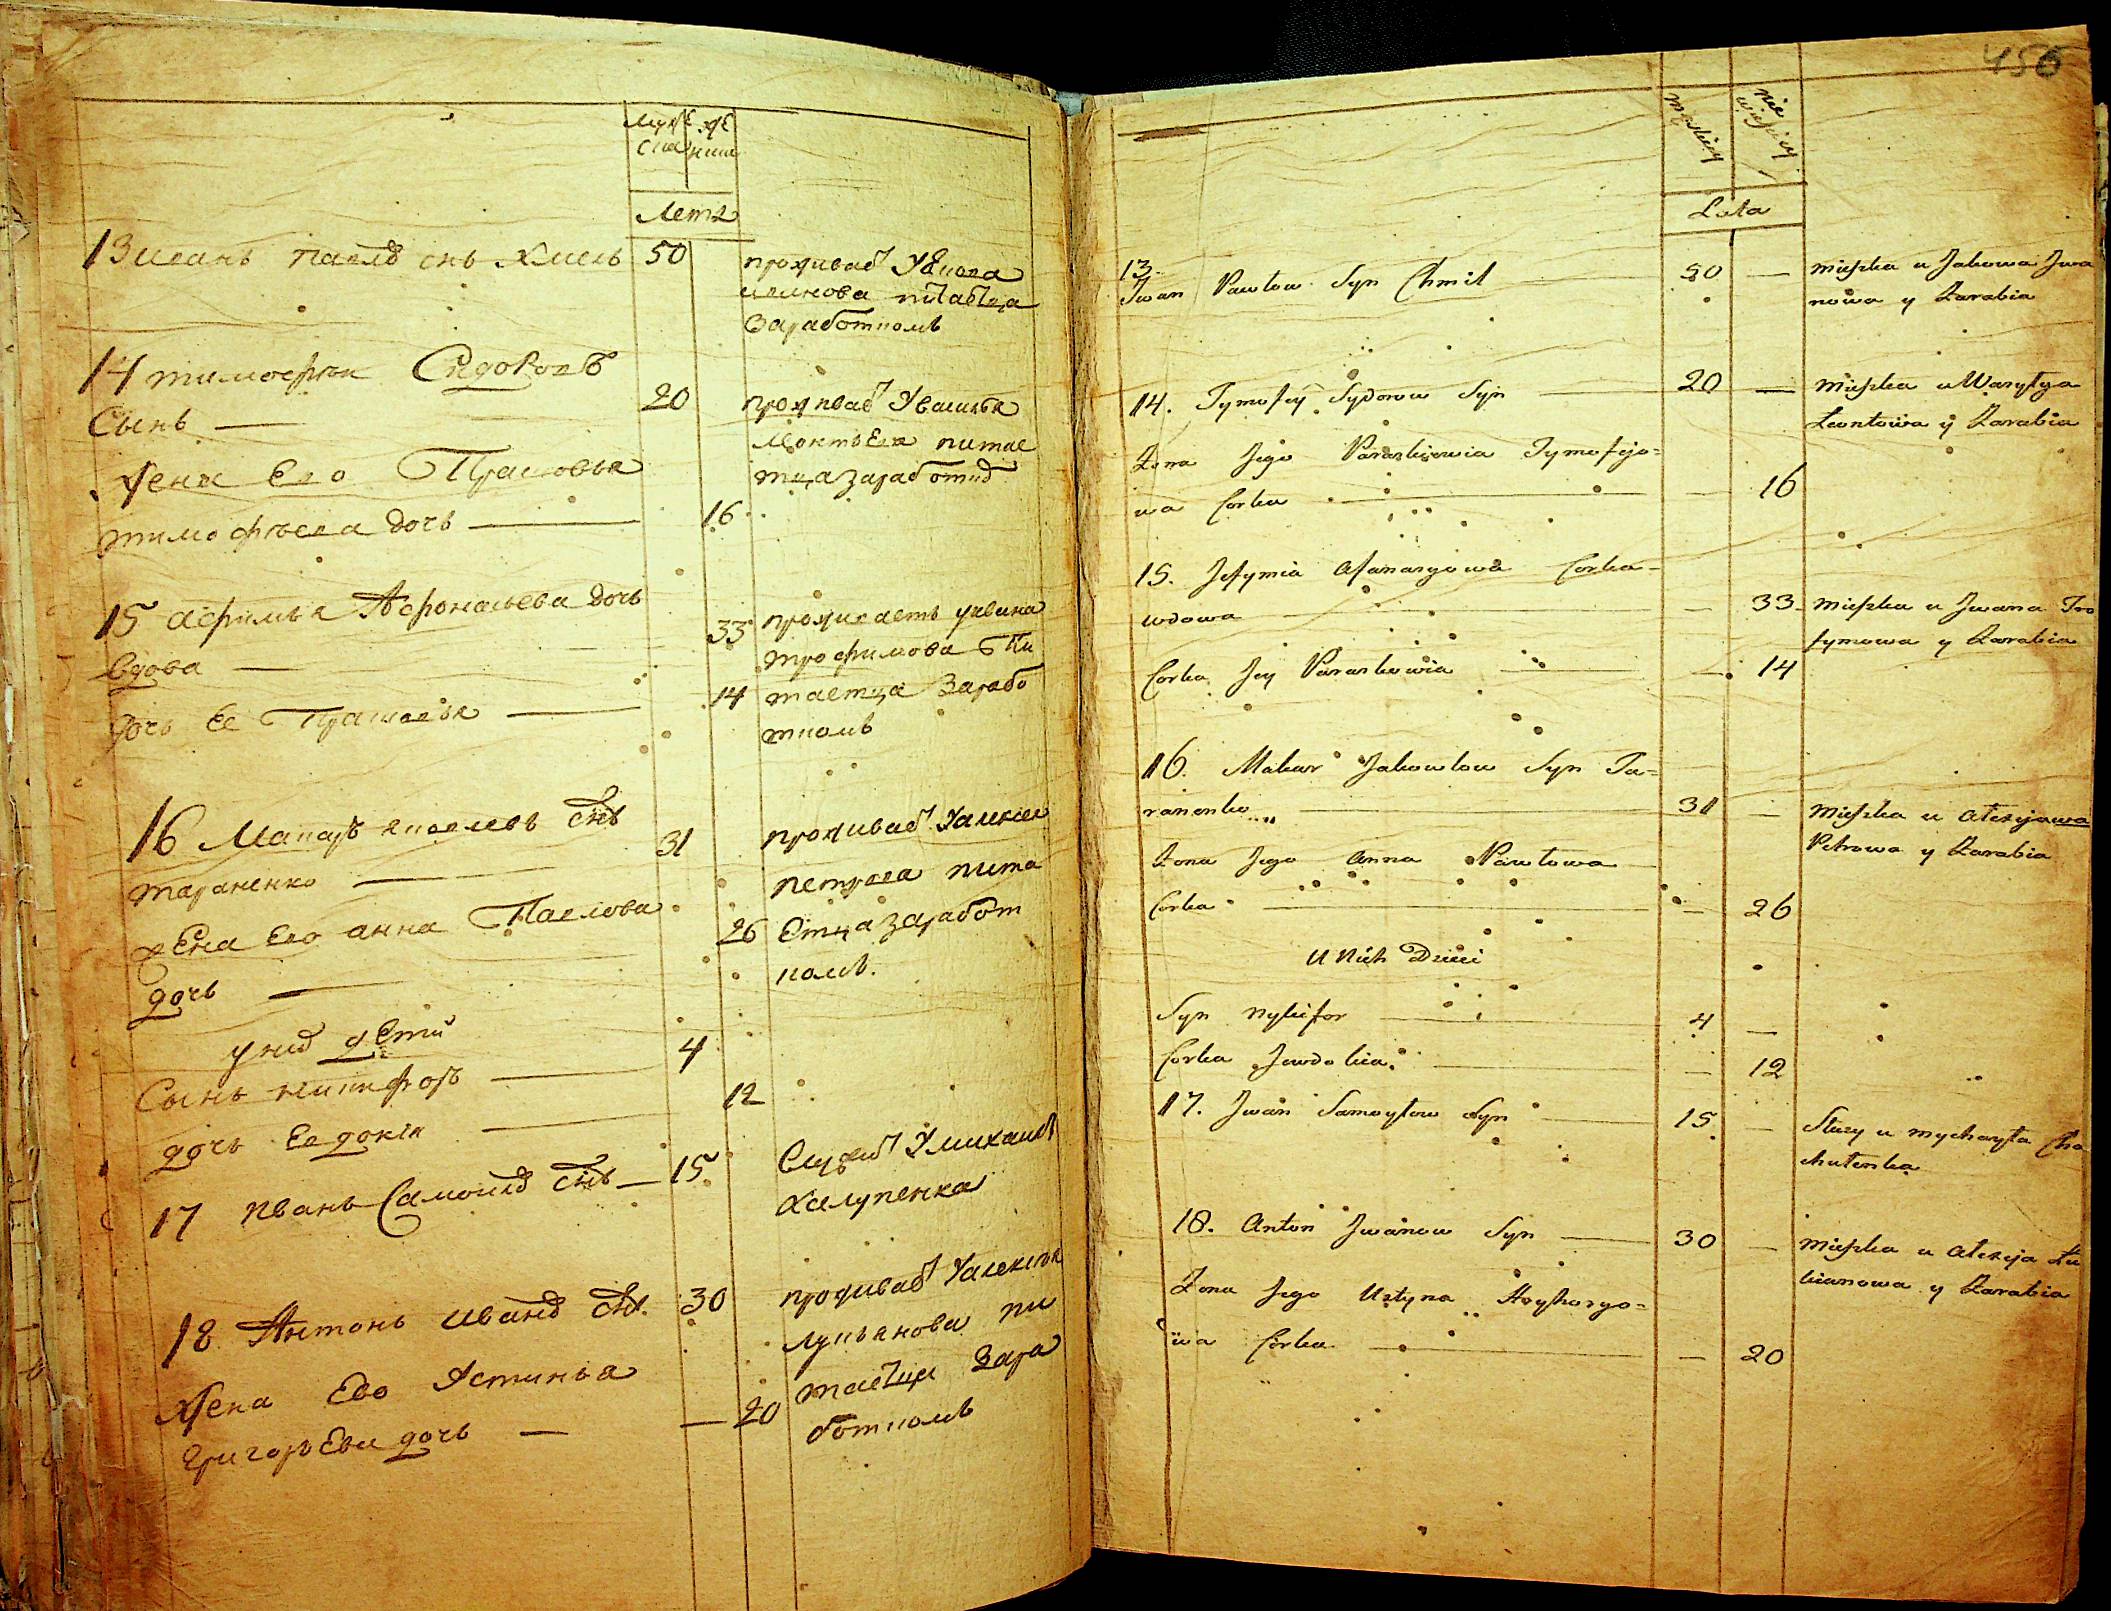 Муже жє
ска нска
Летъ
13 иванъ павлов снъ хмель 50 проживает У Якова
иванова питается
Заработкомъ
14 тимофеи Сидоровъ
Сынъ — 20 проживает У василья
леонтьева питае
тца заработко
жена Его Прасковья
тимофѣева дочь — 16
15 аефимья Афонасьева дочь
вдова — 33 проживаетъ уивана
трофимова Пи
таетца Зарабо
ткомъ
дочь Ее Прасковья — 14
16 Макаръ яковлевъ снъ
тараненко — 31 проживает Уалексея
петрова пита
Етца заработ
комъ.
жЕна Его анна Павлова
дочь — 26
у них дЕти
Сынъ никифоръ — 4
дочь Евдокія — 12
17 иванъ Самоилов снъ — 15 Служит У михаила
Халупенка
18 Антонъ иванов снъ 30 проживает Уалексея
лукьянова пи
таетца Зара
боткомъ
жена Ево Устинья
григорьЕва дочь — — 20
456
Męskiey
Nie
wieściey
Lata
13.
Iwan Pawłow Syn Chmil — 50 — Mieszka u Jakowa Jwa
nowa y Zarabia
14. Tymofiy Sydorow Syn — 20 — Mieszka u Wasyłya
Leontowa y Zarabia
Zona Jego Paraskiowia Tymofijo=
wa Corka — — 16
15. Jefymia Afanasyowa Corka=
wdowa — — 33 Mieszka u Jwana Tro
fymowa y Zarabia
Corka Jey Paraskowia — — 14
16. Makar Jakowlow Syn Ta=
ranenko — 31 — Mieszka u Alexijawa
Petrowa y Zarabia
Zona Jego Anna Pawłowa
Corka — — 26
U Nich Dzieci
Syn Nykifor — 4 —
Corka Jewdokia — — 12
17. Jwan Samoyłow Syn — 15 — Służy u Mychayła Cha
łupenka
18. Anton Jwanow Syn — 30 — Mieszka u Alexija Łu
kianowa y Zarabia
Zona Jego Ustyna Hryhoryo=
wa Corka — — 20